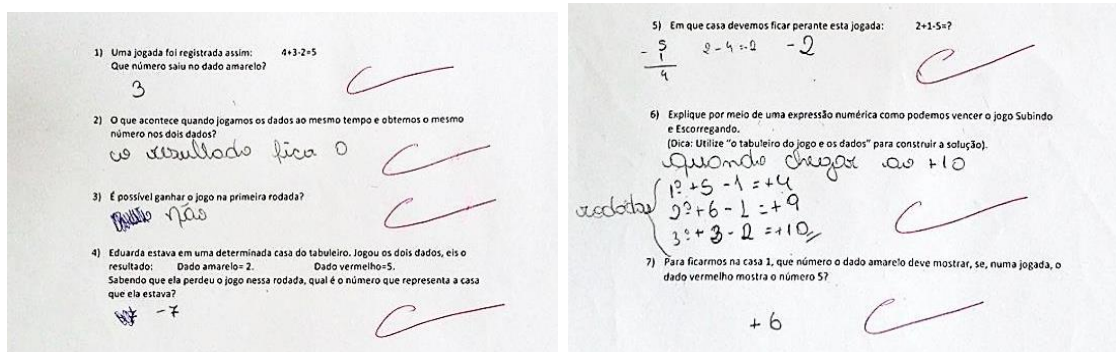 1) Uma jogada foi registrada assim: 4+3-2=5
Que número saiu no dado amarelo?
3
2) O que acontece quando jogamos os dados ao mesmo tempo e obtemos o mesmo
número nos dois dados?
o resultado fica 0
3) É possível ganhar o jogo na primeira rodada?
não
4) Eduarda estava em uma determinada casa do tabuleiro. Jogou os dois dados, eis o
resultado: Dado amarelo= 2. Dado vermelho=5.
Sabendo que ela perdeu o jogo nessa rodada, qual é o número que representa a casa
que ela estava?
-7
5) Em que casa devemos ficar perante esta jogada: 2+1-5=?
- 5
1
4
2-4=-2
-2
6) Explique por meio de uma expressão numérica como podemos vencer o jogo Subindo
e Escorregando.
(Dica: Utilize "o tabuleiro do jogo e os dados" para construir a solução).
Quando chegar ao +10
rodadas
1º +5 - 1 = +4
2º +6 - 1 = +9
3º + 3 - 2 = +10
7) Para ficarmos na casa 1, que número o dado amarelo deve mostrar, se, numa jogada, o
dado vermelho mostra o número 5?
+ 6